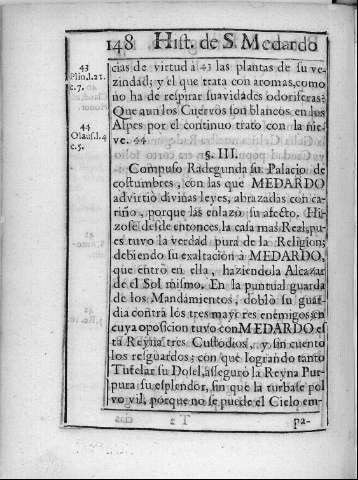 148 Hist. de S. Medardo
43
Plin.l.21.
c.7.
cias de virtud à 43 las plantas de su ve-
zindad; y el que trata con aromas, como
no ha de respirar suavidades odoriferas?
Que aun los Cuervos son blancos en los
44
Olaus.l.4
c.5.
Alpes por el continuo trato con la nie-
ve. 44
§. III.
Compuso Radegunda su Palacio de
costumbres, con las que MEDARDO
advirtiò divinas leyes, abrazadas con ca-
riño, porque las enlazò su afecto. Hi-
zose desde entonces la casa mas Real, pu-
es tuvo la verdad pura de la Religion;
debiendo su exaltacion à MEDARDO,
que entrò en ella, haziendola Alcazar
de el Sol mismo. En la puntual guarda
de los Mandamientos, doblò su guar-
dia contra los tres mayores enemigos; en
cuya oposicion tuvo con MEDARDO es
ta Reyna tres Custodios, y sin cuento
los resguardos; con que logrando tanto
Tutelar su Dosel, assegurò la Reyna Pur-
pura su esplendor, sin que la turbase pol
vo vil, porque no se puede el Cielo em-
pa-